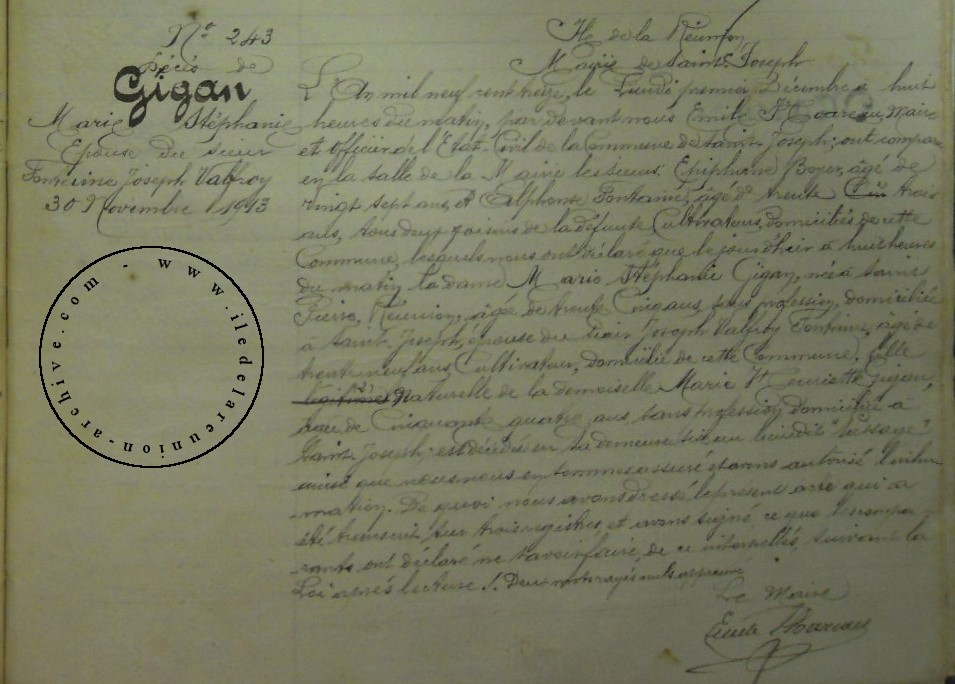 N° 243
Décès de
Gigan
Marie Stéphanie
Epouse du sieur
Fontaine Joseph Valfroy
30 Novembre 1913
www.iledelareunion-archive.com -
Ile de la Réunion
Mairie de Saint-Joseph
L'An mil neuf cent treize, le Lundi premier Décembre à huit
heures du matin, par devant nous Emile Hoareau, Maire
et officier de l'Etat-Civil de la Commune de Saint Joseph; ont comparu
en la salle de la Mairie les sieurs: Epiphane Boyer, âgé de
vingt sept ans, et Alphonse Fontaine, âgé de trente trois
ans, tous deux voisins de la défunte Cultivateurs, domiciliés de cette
Commune, lesquels nous ont déclaré que le jour d'hier à huit heures
du matin la dame Marie Stéphanie Gigan, née à Saint
Pierre, Réunion, âgée de trente Cinq ans, sans profession, domiciliée
à Saint Joseph, épouse du sieur Joseph Valfroy Fontaine, âgé de
trente neuf ans, Cultivateur, domicilié de cette Commune, fille
légitime Naturelle de la demoiselle Marie Henriette Gigan,
âgée de Cinquante quatre ans, sans profession domiciliée à
Saint Joseph; est décédée en sa demeure sise au lieu dit
ainsi que nous nous en sommes assuré et avons autorisé l'inhu
-mation. De quoi nous avons dressé le présent acte qui a
été transcrit sur trois registres, et avons signé, ce que les compa
-rants ont déclaré ne savoir faire, de ce interpellés, suivant la
Loi après lecture ./. Deux mots rayés nuls approuvé
Le Maire
Emile Hoareau